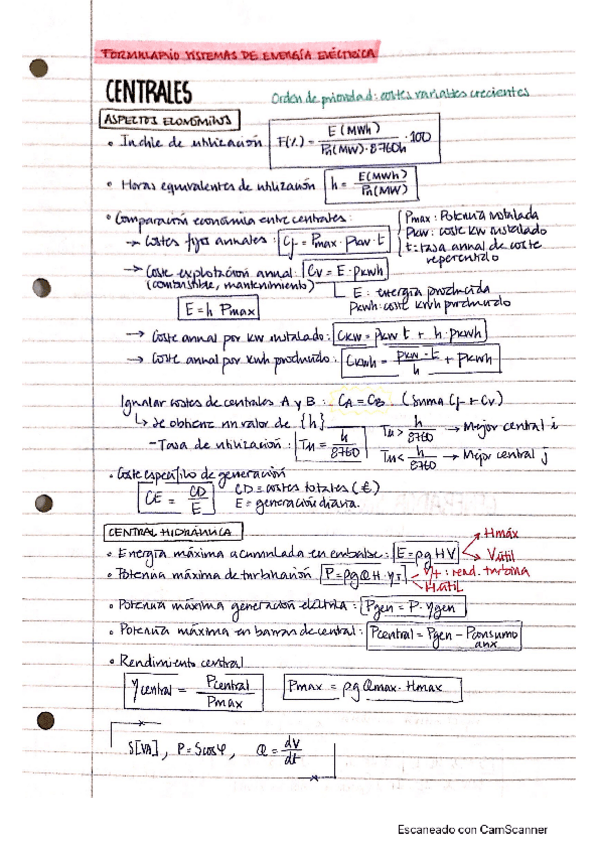 FORMULARIO SISTEMAS DE ENERGÍA ELÉCTRICA
CENTRALES
Orden de prioridad: costes variables crecientes
ASPECTOS ECONÓMICOS
• Índice de utilización F(%) = E(MWh) / Pn(MW)·8760h · 100
• Horas equivalentes de utilización h = E(MWh) / Pn(MW)
• Comparación económica entre centrales:
Pmax: Potencia instalada
Pkw: coste kW instalado
t: tasa annal de coste repercutido
→ Costes fijos annales: Cf = Pmax · Pkw · t
→ Coste explotación annal: Cv = E · Pkwh
(combustible, mantenimiento)
E: energía producida
Pkwh: coste kWh producido
E = h Pmax
→ Coste annal por kW instalado: Ckw = Pkw t + h · Pkwh
→ Coste annal por kWh producido: Ckwh = Pkw · t / h + Pkwh
Igualar costes de centrales A y B: CA = CB (suma Cf + Cv)
↳ se obtiene un valor de {h}
- Tasa de utilización: Tu = h / 8760
Tu > h / 8760 → Mejor central i
Tu < h / 8760 → Mejor central j
• Coste específico de generación
CE = CD / E
CD = costes totales (€)
E = generación diaria.
CENTRAL HIDRÁULICA
• Energía máxima acumulada en embalse: E = ρgHV
Hmáx
Vútil
• Potencia máxima de turbinación P = ρgQH · η
t: rend. turbina
Hútil
• Potencia máxima generación eléctrica: Pgen = P · ηgen
• Potencia máxima en barras de central: Pcentral = Pgen − Pconsumo aux
• Rendimiento central
ηcentral = Pcentral / Pmax
Pmax = ρg Qmax · Hmax
S[VA], P = S cosφ, Q = dV / dt
Escaneado con CamScanner